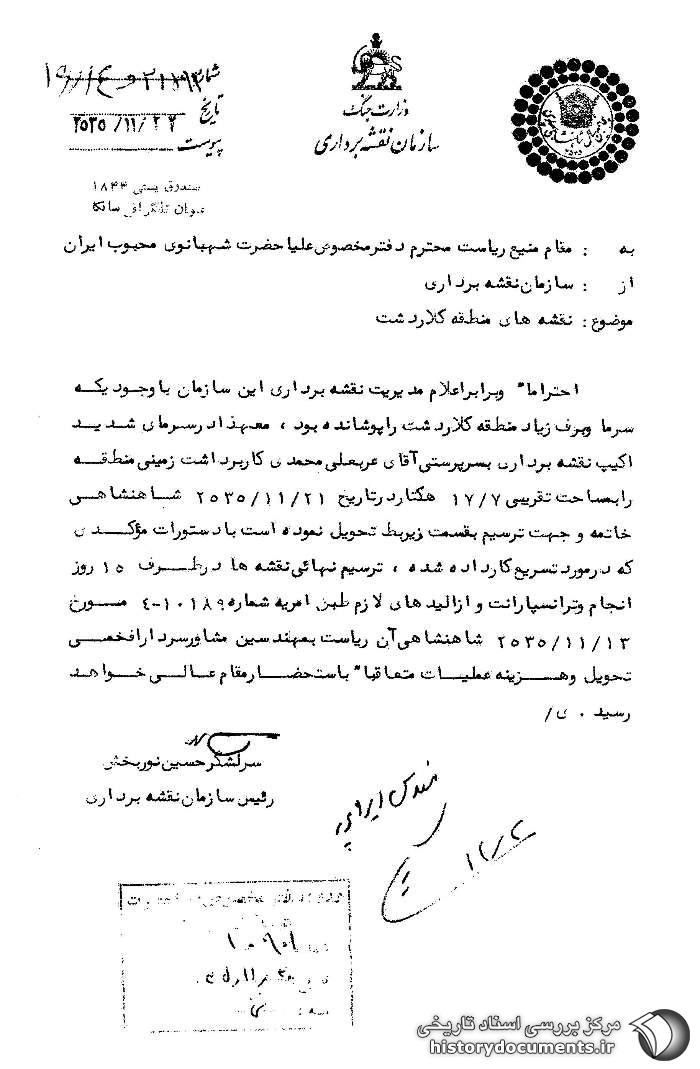 وزارت جنگ
سازمان نقشه برداری
شماره
تاریخ ۲۵۳۵/۱۱/۲۴
پیوست
صندوق پستی ۱۸۴۴
عنوان تلگرافی سانکا
به : مقام منیع ریاست محترم دفترمخصوص علیاحضرت شهبانوی محبوب ایران
از : سازمان نقشه برداری
موضوع : نقشه های منطقه کلاردشت
احتراما" وبرابراعلام مدیریت نقشه برداری این سازمان باوجودیکه
سرما وبرف زیاد منطقه کلاردشت راپوشانده بود ، معهذا درسرمای شدید
اکیپ نقشه برداری بسرپرستی آقای عربعلی محمدی کاربرداشت زمینی منطقه
رابمساحت تقریبی ۱۷/۷ هکتاردرتاریخ ۲۵۳۵/۱۱/۲۱ شاهنشاهی
خاتمه و جهت ترسیم بقسمت زیربط تحویل نموده است بادستورات مؤکدی
که درمورد تسریع کارداده شده ، ترسیم نهائی نقشه ها درظرف ۱۵ روز
انجام وترانسپارانت و ازالیدهای لازم طبق امریه شماره ۱۰۱۸۹-۴ مورخ
۲۵۳۵/۱۱/۱۳ شاهنشاهی آن ریاست بمهندسین مشاورسردارافخمی
تحویل وهزینه عملیات متعاقبا" باستحضارمقام عالی خواهد
رسید . ی/
سرلشگرحسین نوربخش
رئیس سازمان نقشه برداری
مرکز بررسی اسناد تاریخی
historydocuments.ir